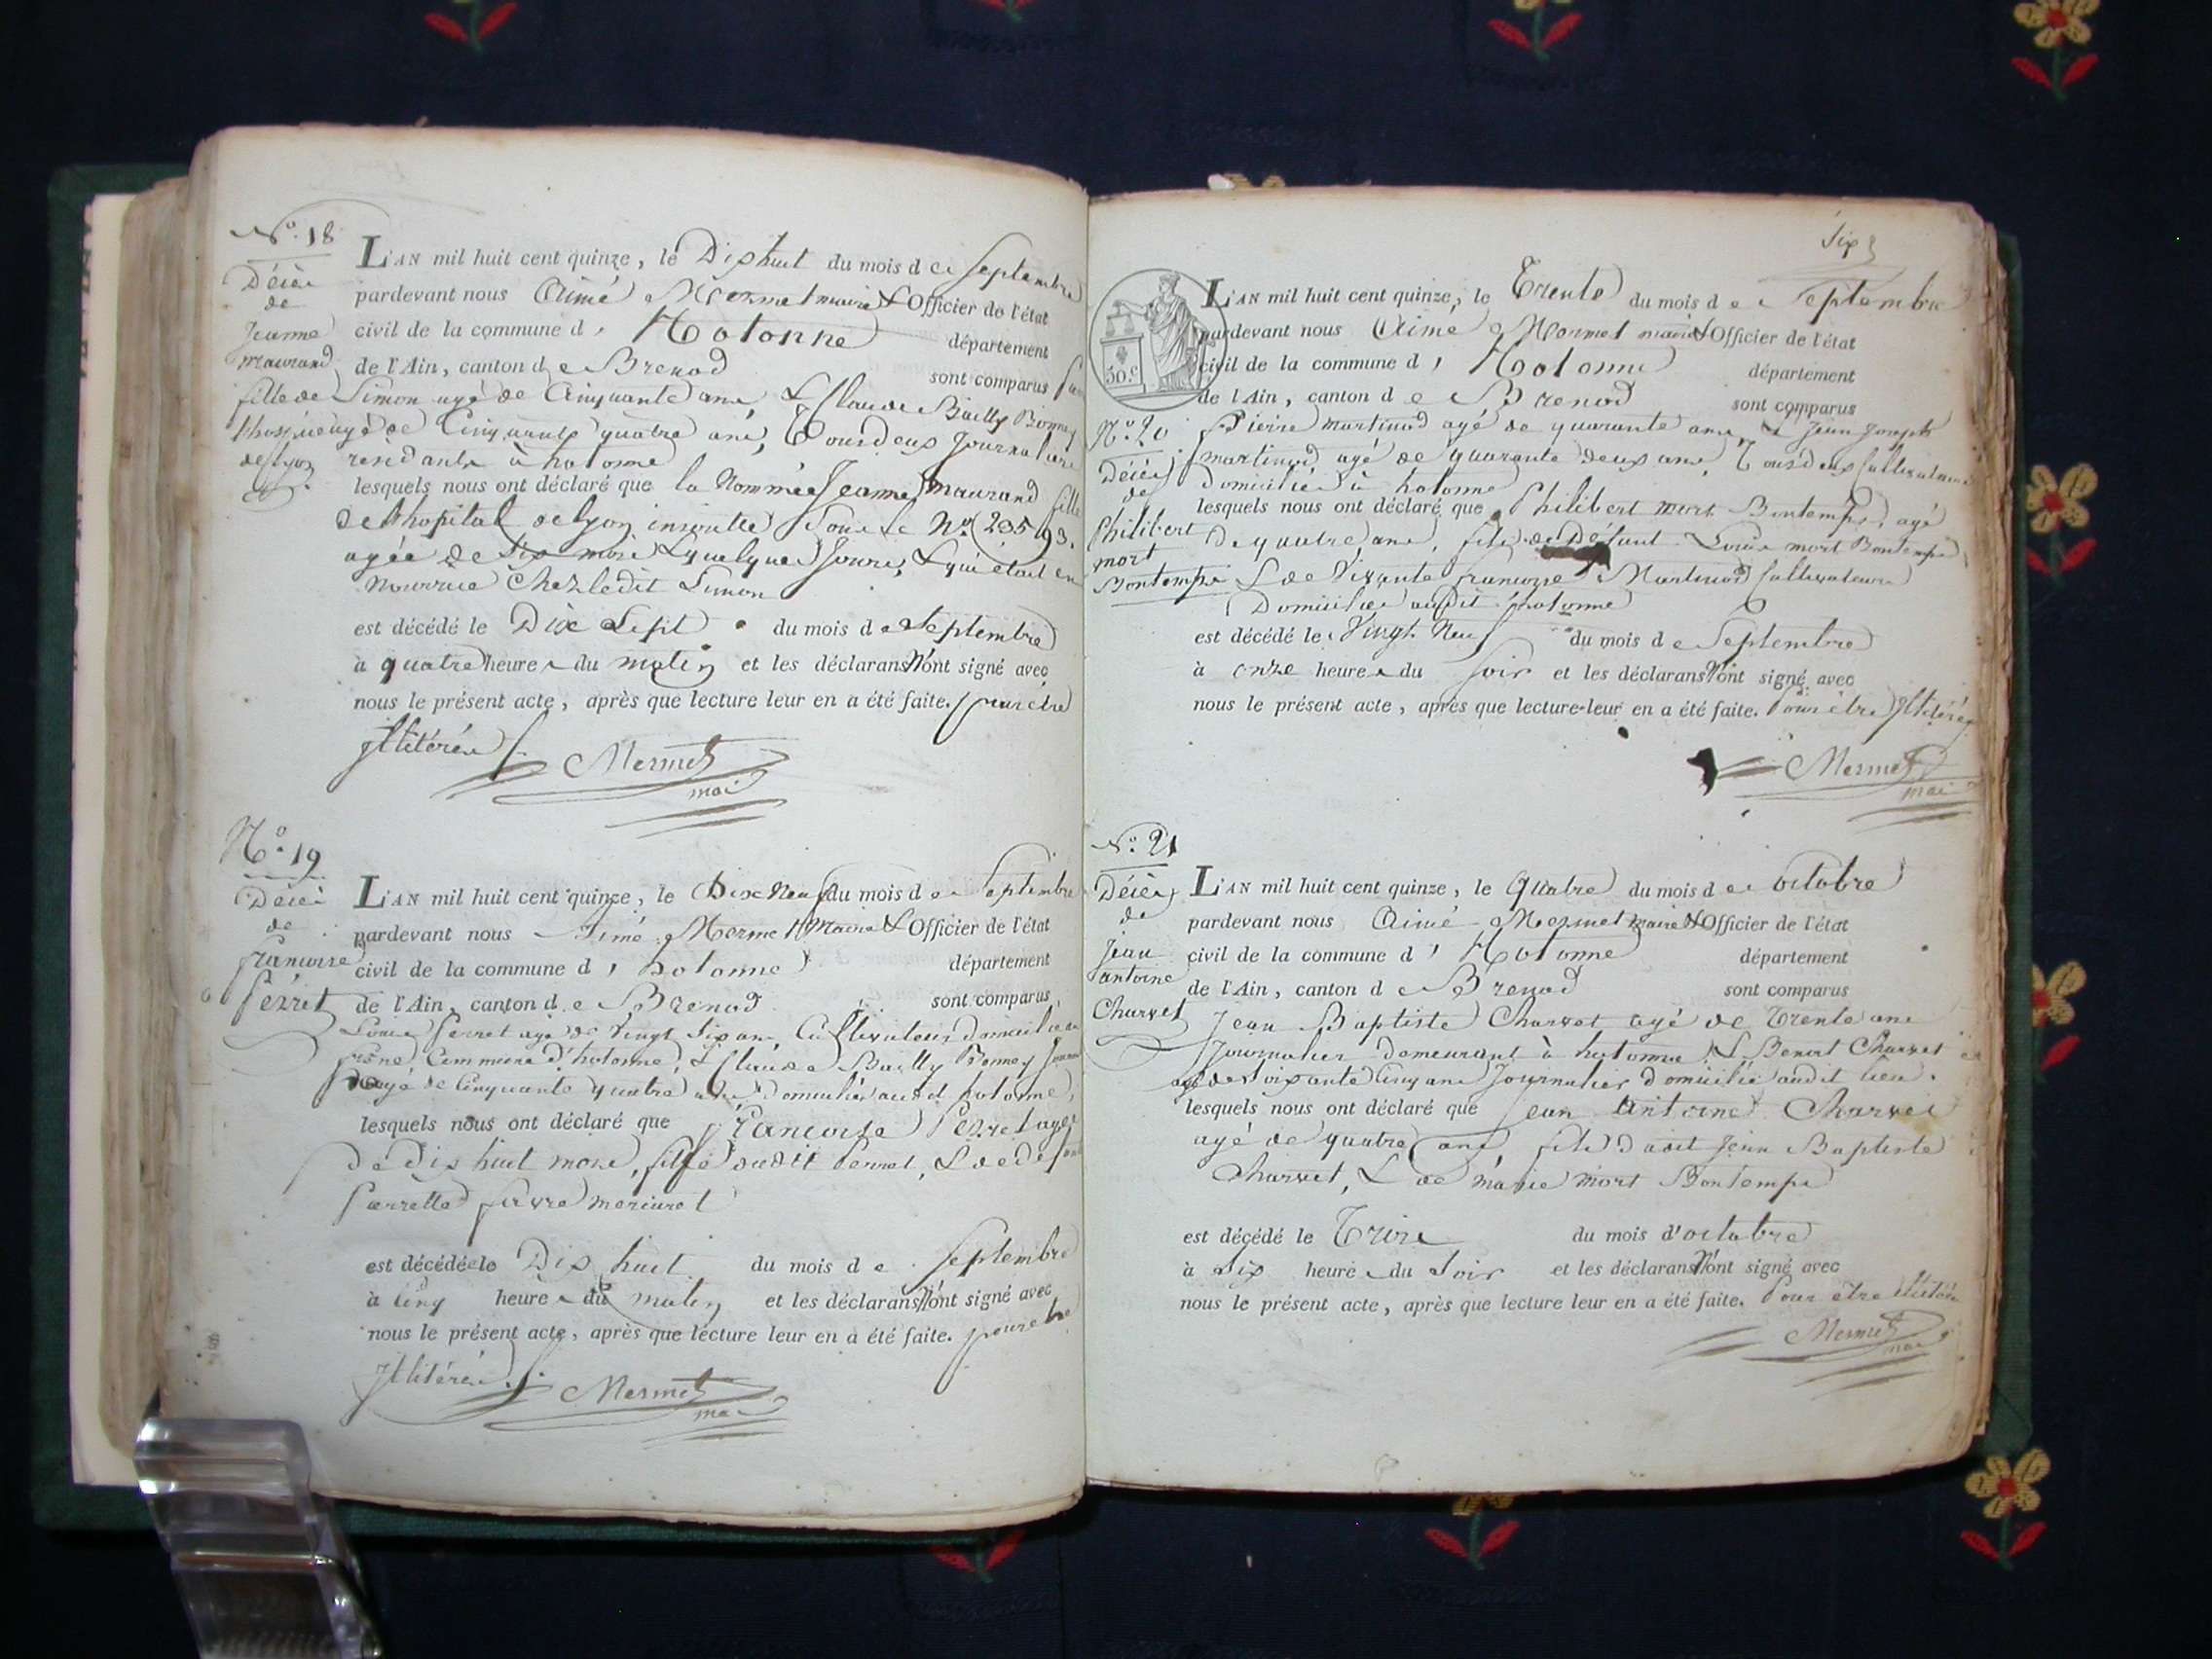 N.º 18
Décès
de
Jeanne
maurand
fille de
l'hospice
de Lyon
L'AN mil huit cent quinze, le Dix huit du mois de Septembre
pardevant nous Aimé Mermet maire & Officier de l'état
civil de la commune d' hotonne département
de l'Ain, canton de Brenod sont comparus
Simon agé de Cinquante ans, & Claude Bailly Bonney
agé de Cinquante quatre ans, Tous deux Journaliers
résidants à hotonne
lesquels nous ont déclaré que la Nommée Jeanne maurand fille
de l'hopital de Lyon inscritte Sous le N.º 23593.
agée de Six mois & quelques Jours, & qui était en
Nourrice Chez ledit Simon
est décédé le Dix Sept du mois de Septembre
à quatre heures du matin et les déclarans N'ont signé avec
nous le présent acte, après que lecture leur en a été faite. pour être
Illitérés
Mermet
mai
N.º 19
Décès
de
francoise
Perret
L'AN mil huit cent quinze, le Dix Neuf du mois de Septembre
pardevant nous Aimé Mermet Maire & Officier de l'état
civil de la commune d' hotonne département
de l'Ain, canton de Brenod sont comparus
Louis Perret agé de Vingt Six ans Cultivateur domicilié
Commune d'hotonne, & Claude Bailly Bonney
agé de Cinquante quatre ans domicilié audit hotonne,
lesquels nous ont déclaré que francoise Perret agée
de dix huit mois, fille dudit Perret, & de défunte
Pierrette favre
est décédée le Dix huit du mois de Septembre
à Cinq heures du matin et les déclarans N'ont signé avec
nous le présent acte, après que lecture leur en a été faite. pour être
Illitérés.
Mermet
mai
Six
30 C.
L'AN mil huit cent quinze, le Trente du mois de Septembre
pardevant nous Aimé Mermet maire & Officier de l'état
civil de la commune d' hotonne département
de l'Ain, canton de Brenod sont comparus
N.º 20
Décès
de
Philibert
mort
Bontemps
Pierre martinod agé de quarante ans & Jean Joseph
martinod agé de quarante deux ans, Tous deux Cultivateurs
Domiciliés à hotonne
lesquels nous ont déclaré que Philibert mort Bontemps, agé
De quatre ans, fils de Défunt Louis mort Bontemps
& de Vivante francoise Martinod Cultivateurs
Domiciliés audit hotonne
est décédé le Vingt Neuf du mois de Septembre
à onze heures du Soir et les déclarans N'ont signé avec
nous le présent acte, après que lecture leur en a été faite. Pour être Illitérés
Mermet
mai
N.º 21
Décès
de
Jean
antoine
Charvet
L'AN mil huit cent quinze, le Quatre du mois de octobre
pardevant nous Aimé Mermet maire & Officier de l'état
civil de la commune d' hotonne département
de l'Ain, canton de Brenod sont comparus
Jean Baptiste Charvet agé de Trente ans
Journalier demeurant à hotonne & Benoit Charvet
agé de Soixante Cinq ans Journalier domicilié audit lieu.
lesquels nous ont déclaré que Jean Antoine Charvet
agé de quatre ans, fils dudit Jean Baptiste
Charvet, & de marie mort Bontemps
est décédé le Trois du mois d'octobre
à Six heures du Soir et les déclarans N'ont signé avec
nous le présent acte, après que lecture leur en a été faite. Pour être Illitérés
Mermet
mai